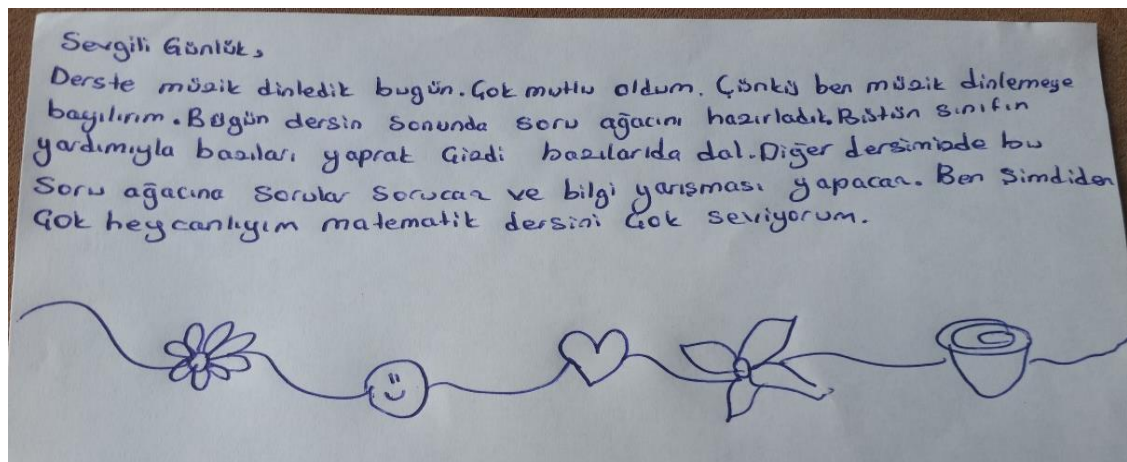 Sevgili Günlük,
Derste müzik dinledik bugün. Çok mutlu oldum. Çünkü ben müzik dinlemeye
bayılırım. Bugün dersin sonunda soru ağacını hazırladık. Bütün sınıfın
yardımıyla bazıları yaprak çizdi bazılarıda dal. Diğer dersimizde bu
soru ağacına sorular sorucaz ve bilgi yarışması yapacaz. Ben şimdiden
çok heycanlıyım matematik dersini çok seviyorum.